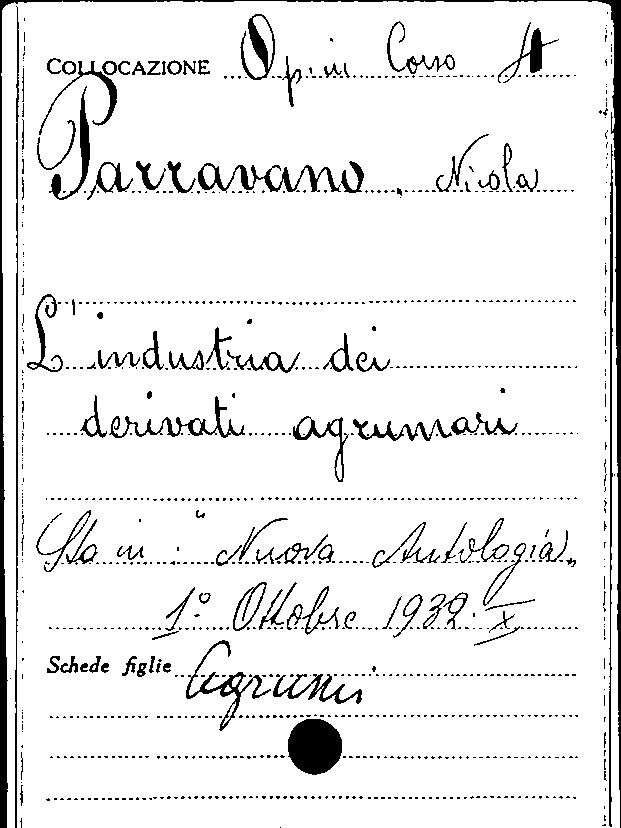 COLLOCAZIONE Op. in Corso
Parravano, Nicola
L'industria dei
derivati agrumari
Sta in: "Nuova Antologia„
1° Ottobre 1932. X
Schede figlie Agrumi